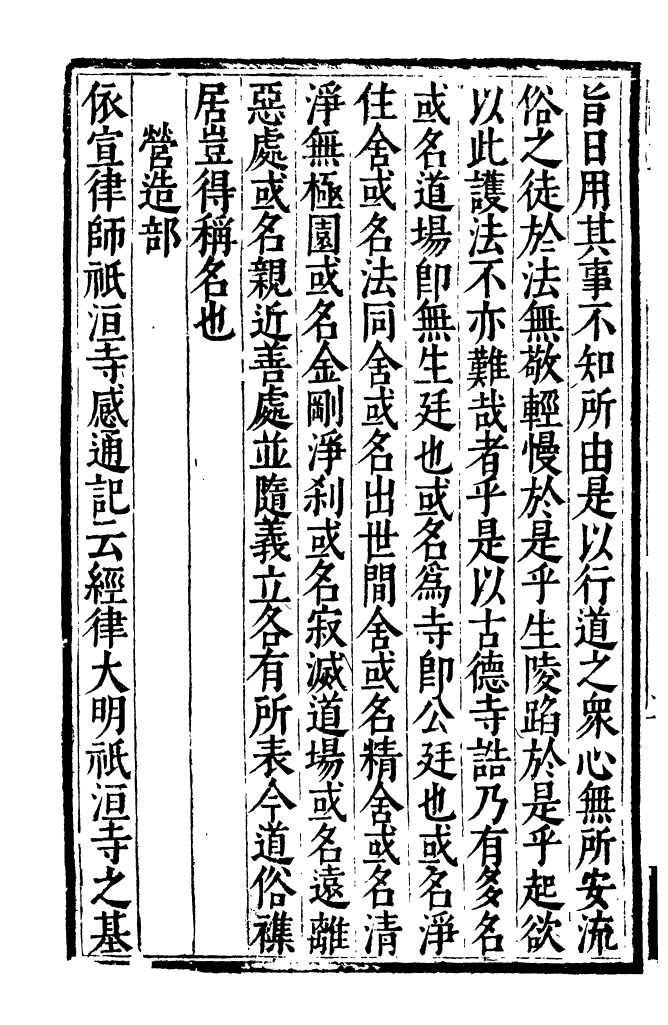 旨日用其事不知所由是以行道之衆心無所安流
俗之徒於法無敬輕慢於是乎生陵蹈於是乎起欲
以此護法不亦難哉者乎是以古德寺誥乃有多名
或名道場即無生廷也或名爲寺即公廷也或名淨
住舍或名法同舍或名出世間舍或名精舍或名清
淨無極園或名金剛淨刹或名寂滅道場或名遠離
惡處或名親近善處並隨義立各有所表今道俗襍
居豈得稱名也
營造部
依宣律師祇洹寺感通記云經律大明祇洹寺之基